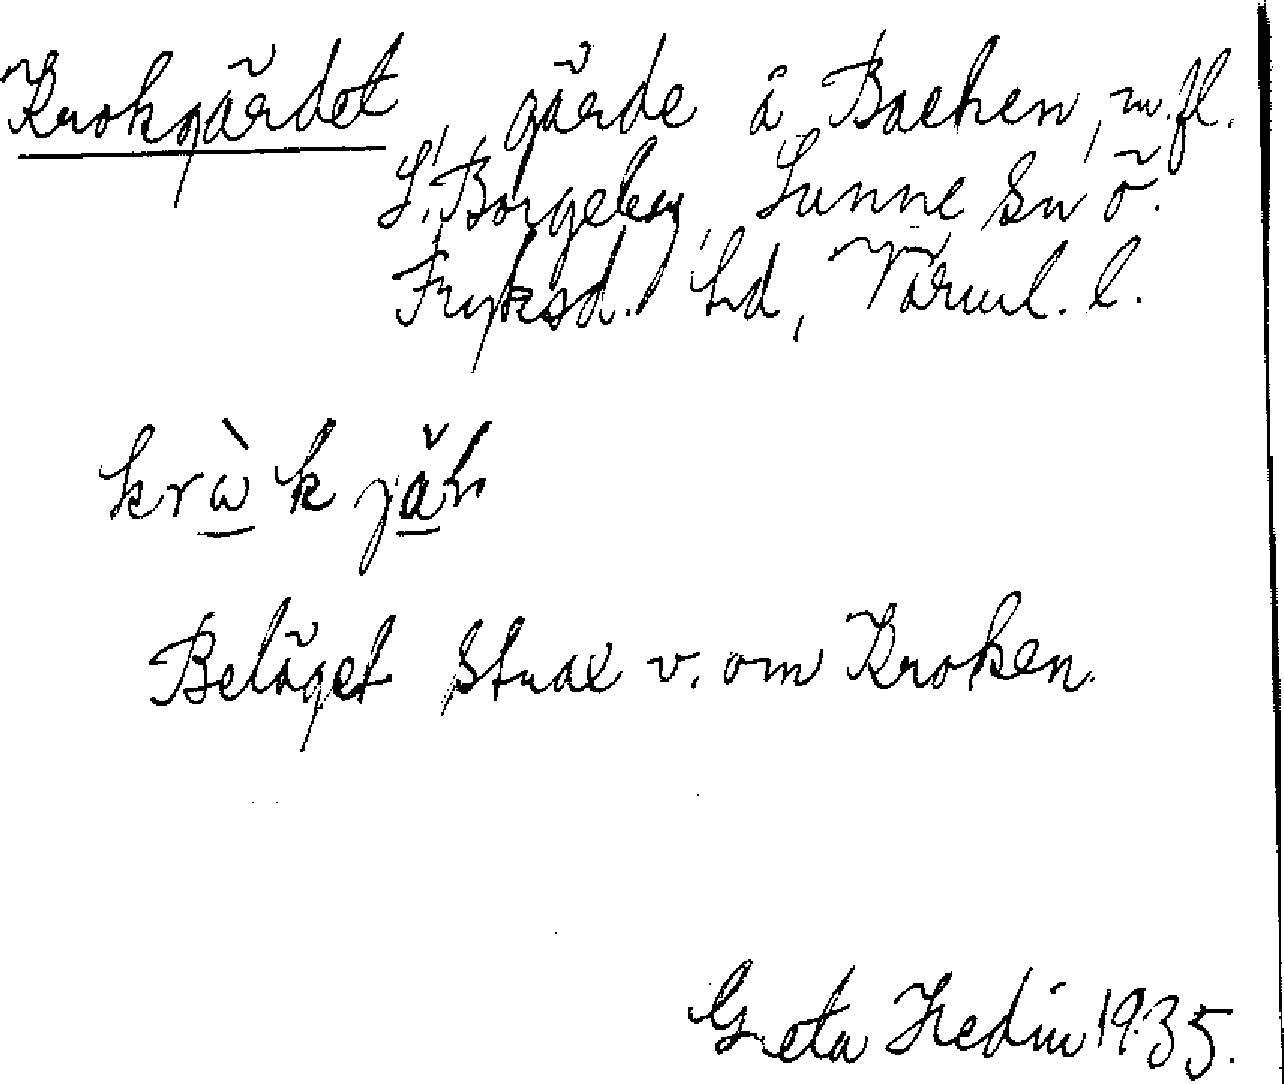 Krokgärdet, gärde å Backen, m.fl.
S. Borgeby, Sunne sn ö.
Fryksd. hd, Värml. l.
kràk jäɫ
Beläget strax v. om Kroken.
Greta Hedin 1935.